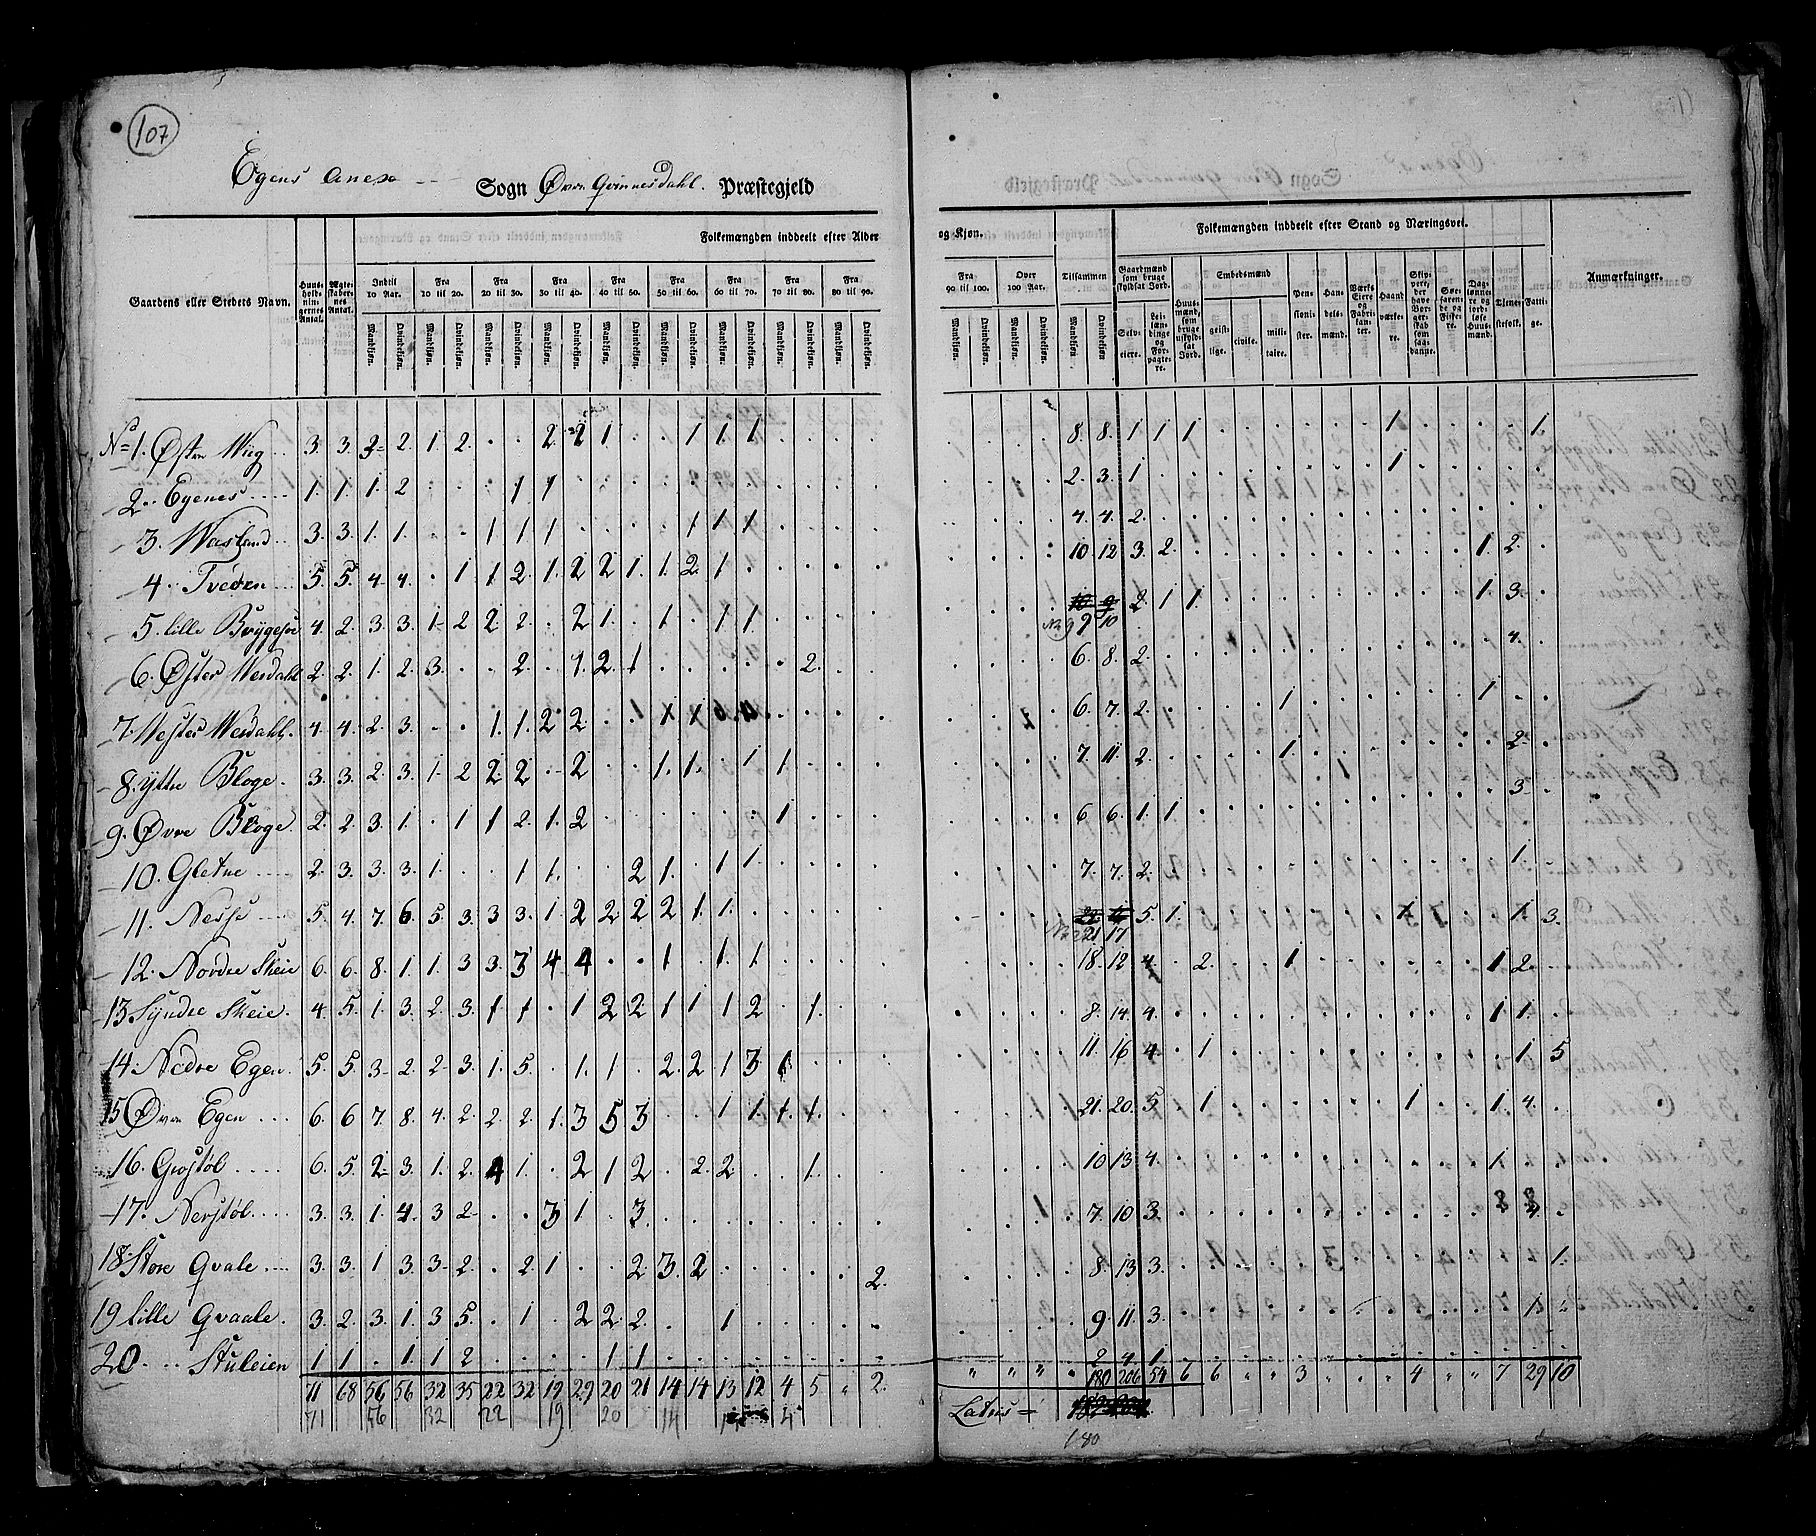 107
Egens anex Sogn Øvre Qvinnesdahl. Præstegjeld
Gaardens eller Stedets Navn. Huusholdningernes Antal. Ægteskabernes Antal. Folkemængden inddeelt efter Alder
Indtil 10 Aar. Fra 10 til 20. Fra 20 til 30. Fra 30 til 40. Fra 40 til 50. Fra 50 til 60. Fra 60 til 70. Fra 70 til 80. Fra 80 til 90.
Mandkjøn. Qvindekjøn. Mandkjøn. Qvindekjøn. Mandkjøn. Qvindekjøn. Mandkjøn. Qvindekjøn. Mandkjøn. Qvindekjøn. Mandkjøn. Qvindekjøn. Mandkjøn. Qvindekjøn. Mandkjøn. Qvindekjøn. Mandkjøn. Qvindekjøn.
No 1. Østre Wiig 3. 3. 3 2. 1. 2. . . 2. 2 1 . . 1 1. 1
2. Egenes 1. 1. 1. 2 . . . 1 1
3. Wasland 3. 3. 1. 1. . . 1 1 1 . . . . 1 1 1
4. Tveden 5. 5. 4. 4. . 1 1. 2. 1. 2 2 1. 1. 2. 1
5. lille Brygesøe 4. 2. 3. 3. 1. 2 2. 2. . 2 1. . 1. . 1 1
6. Øster Werdahl 2. 2. 1. 2. 3. . . 2. . 1. 2. 1 . . . . . 2.
7. Wester Werdahl. 4. 4. 2. 3. . . 1. 1. 2 2. . 1
8. Yttre Bloge. 3. 3. 2. 3. 1. 2 2. 2. . 2 . . 1. 1. . 1 1
9. Øvre Bloge. 2. 2. 3. 1. . 1 1 2. 1. 2 . . . . . . 1
10. Gletne 2. 3. 3. 3. 1. . . 1 1. . . 2 1. . 1 1.
11. Nesse 5. 4. 7. 6. 5. 3. 3. 3. 1. 2 2. 2 2 1. 1.
12. Nordre Skeie 6. 6. 8. 1. 1. 3 3. 3 4 4 . . 1 . 1. 1
13 Syndre Skeie. 4. 5. 1. 3. 2. 3. 1 1. . 1 2 2 1 1 1 2 . 1.
14 Nedre Egen. 5. 5. 3. 2. 2. 3. 1. 5. . 1. 1 . 2. 2 1 3 1
15 Øvre Egen 6. 6 7. 8. 4. 2. 2. 2. 1. 3 5 3 . . 1 1. 1. 1.
16. Grostøl 6. 5. 2. 3. 1. 2. 4 1. . 2 1 2 . 2. 2 . . 1.
17. Nerstøl 3. 3. 1. 4. 3 2. . . 3 1 . 3.
18. Store Qvale 3. 3. 1 3. 3. 2. . 2. 1. . . 2 3. 2 . . . . . 2.
19 lille Qvaale. 3. 2. 3. 1. 3 5. . 1. . 2 2 2. . . 1
20 Stuleien 1 1 . 1. 1 2 . . . . 1 1
71 68 56 56 32 35 22 32 19 29 20 21 14 14 13 12 4 5 „ 2.
71 56 32 22 19 20 14 4
og Kjøn. Tilsammen Folkemængden inddeelt efter Stand og Næringsvei. Anmærkninger.
Fra 90 til 100. Over 100 Aar. Gaardmænd som bruge skyldsat Jord. Selveiere. Leilændinge og Forpagtere. Huusmænd, som bruge uskyldsat Jord. Embedsmænd geistlige. civile. militaire. Pensionister. Handelsmænd. Værks Eiere og Fabrikanter. Haandværkere. Skippere, der have Borgerskab som saadanne. Søefarende og Fiskere. Daglønnere og jordløse Huusmænd. Tjenestefolk. Fattige.
Mandkjøn. Qvindekjøn. Mandkjøn. Qvindekjøn. Mandkjøn Qvindekjøn.
8. 8. 1 1 1 1 1.
2. 3. 1 1
4. 4. 2.
10. 12 3. 2. 1. 2.
2 1 1. 1 3.
9 10
6. 8. 2. 4.
6. 7. 2. 1 1.
7. 11. 2. 1. 2
6 6. 1. 1. 3
7. 7. 2. 1.
5. 1. 1 1. 3.
21 17
18. 12 4. 2. 1 1 2.
8. 14 4. 1 1.
11. 16 4. 1 1 5
21. 20. 5. 1 1 1. 4.
10 13 4. 1.
7. 10 3.
8. 13 3. 1.
9. 11. 3.
2 4 1.
„ „ „ „ 180 206 54 6 6 „ „ 3 „ „ „ 4 „ „ 7 29 10
Latus =
180